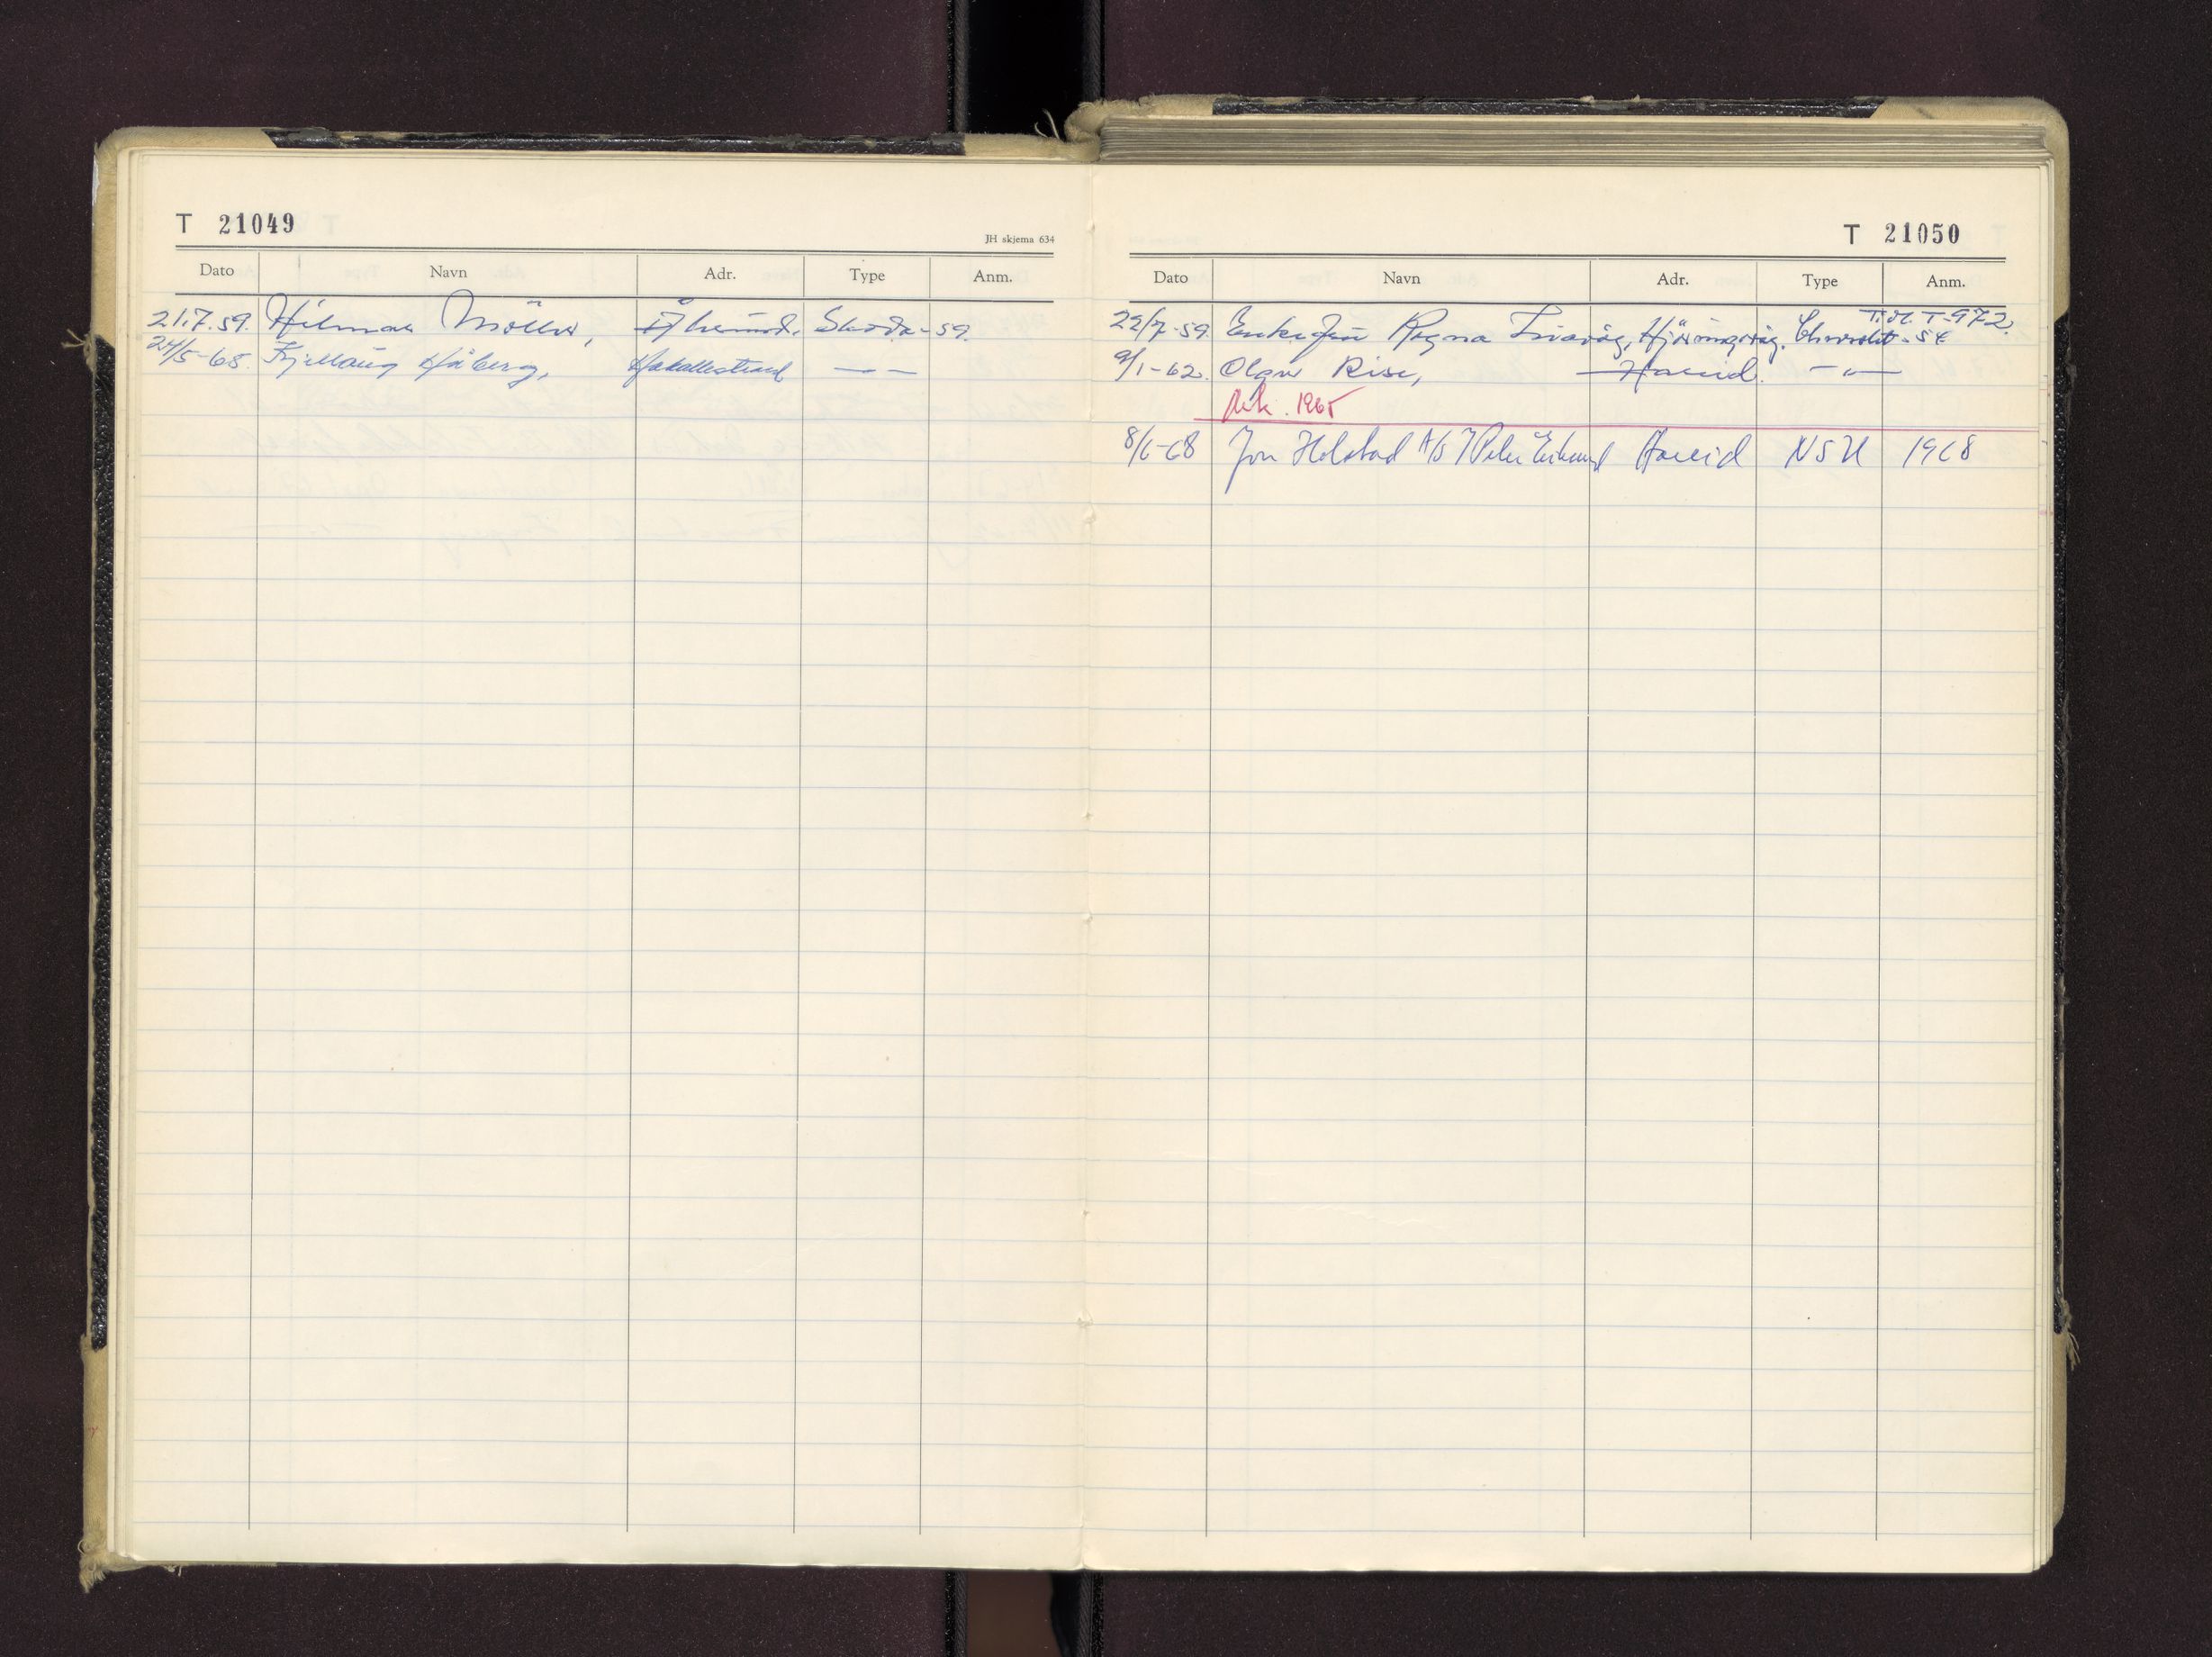 T 21049
JH skjema 634
Dato Navn Adr. Type Anm.
21.7.59. Hilmar Möller, Åheimd. Skoda - 59.
24/5-65. Kjellaug Håberg, Hakallestrand — —
T 21050
Dato Navn Adr. Type Anm.
Tidl. T-972.
22/7-59. Enkefru Ragna Liavåg, Hjörungavåg. Chevrolet - 54
9/1-62. Olgar Rise, Hareid. —"—
1965
8/6-68 Jon Holstad A/S Hareid NSU 1968